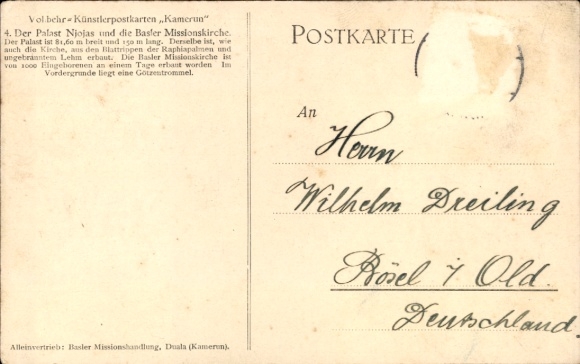 Volbehr-Künstlerpostkarten „Kamerun"
4. Der Palast Njojas und die Basler Missionskirche.
Der Palast ist 81,60 m breit und 150 m lang. Derselbe ist, wie
auch die Kirche, aus den Blattriopen der Raphiapalmen und
ungebranntem Lehm erbaut: Die Basler Missionskirche ist
von 1000 Eingeborenen an einem Tage erbaut worden Im
Vordergrunde liegt eine Götzentrommel.
Alleinvertrieb: Basler Missionshandlung, Duala (Kamerun).
POSTKARTE
An
Herrn
Wilhelm Dreiling
Rösel i/ Old.
Deutschland.